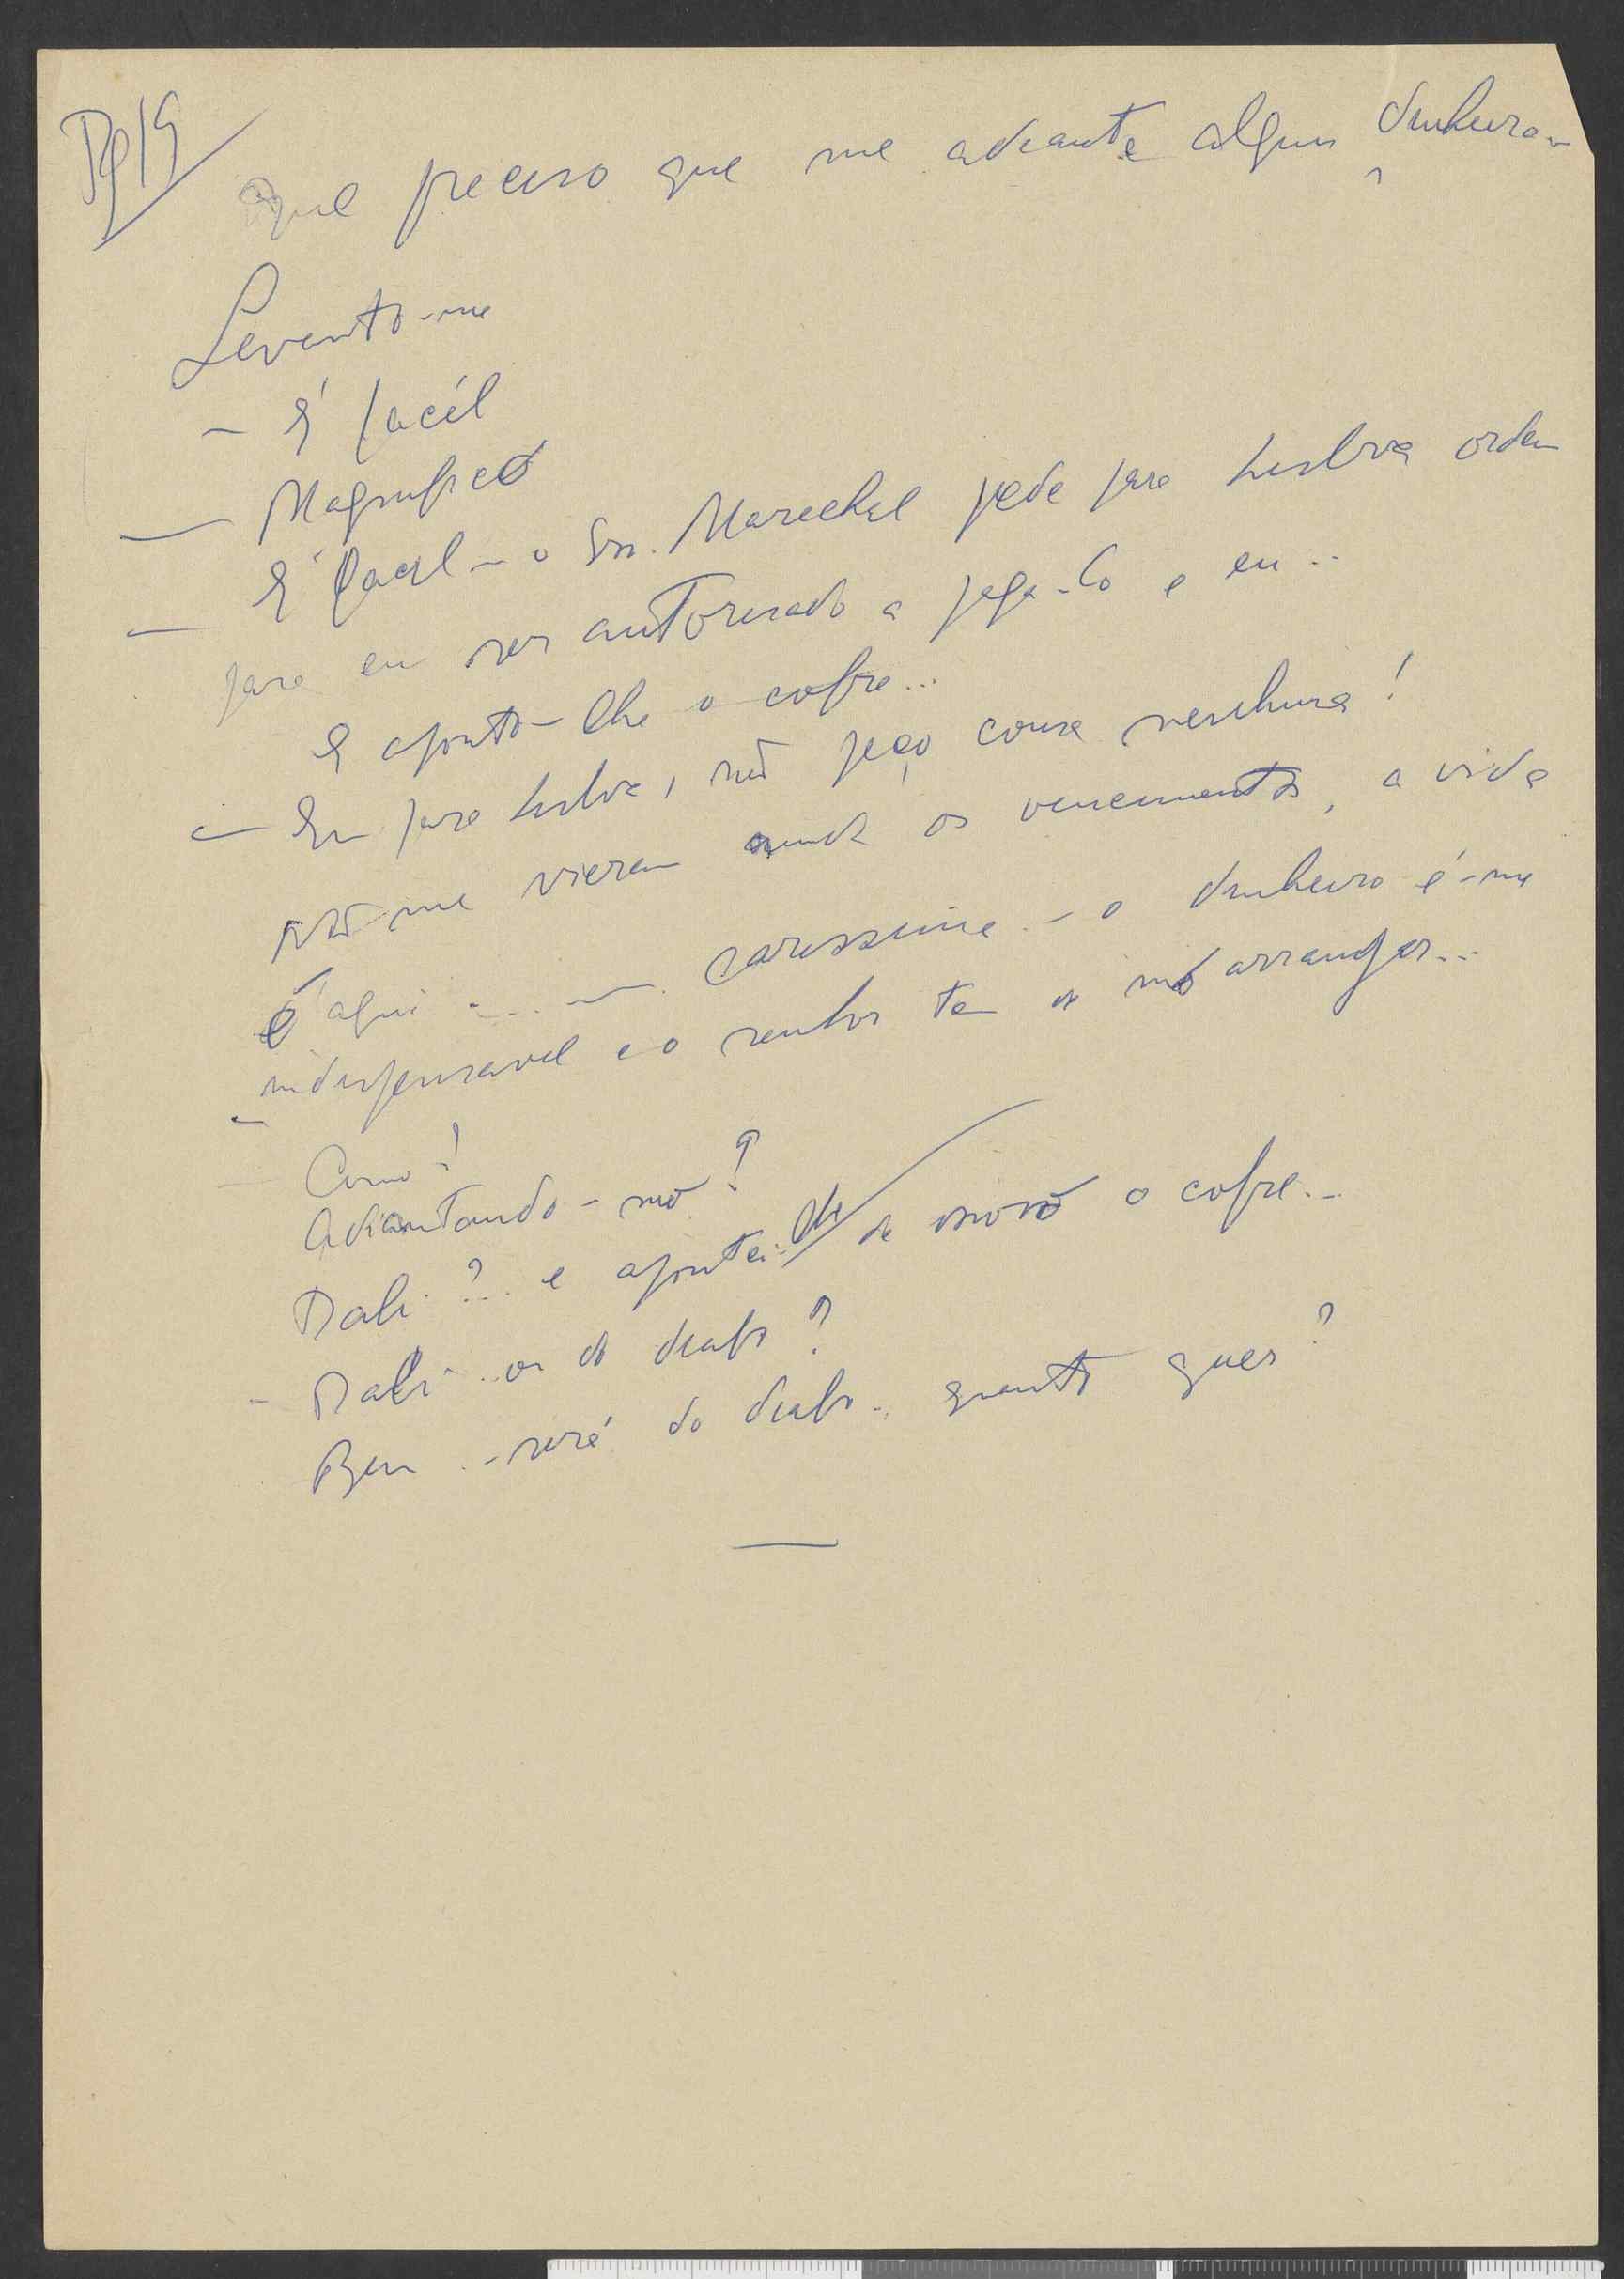 Pg/9
que preciso que me adiante algum dinheiro
Levanto-me
- É facél
— Magnifico
— É facil - o Snr. Marechal pede para Lisboa ordem
para eu ser autorisado a paga-lo e eu...
E aponto-lhe o cofre...
— Eu para Lisboa, não peço cousa nenhuma!
Não me vieram ainda os vencimentos, a vida
é aqui ... carissima - o dinheiro é-me
indispensavel e o senhor tem de mo arranjar...
- Como!
Adiantando-mo?
Dali?... e apontei-lhe de novo o cofre...
- Dali.. ou do diabo?
Bem.. - será do diabo.. quanto quer?